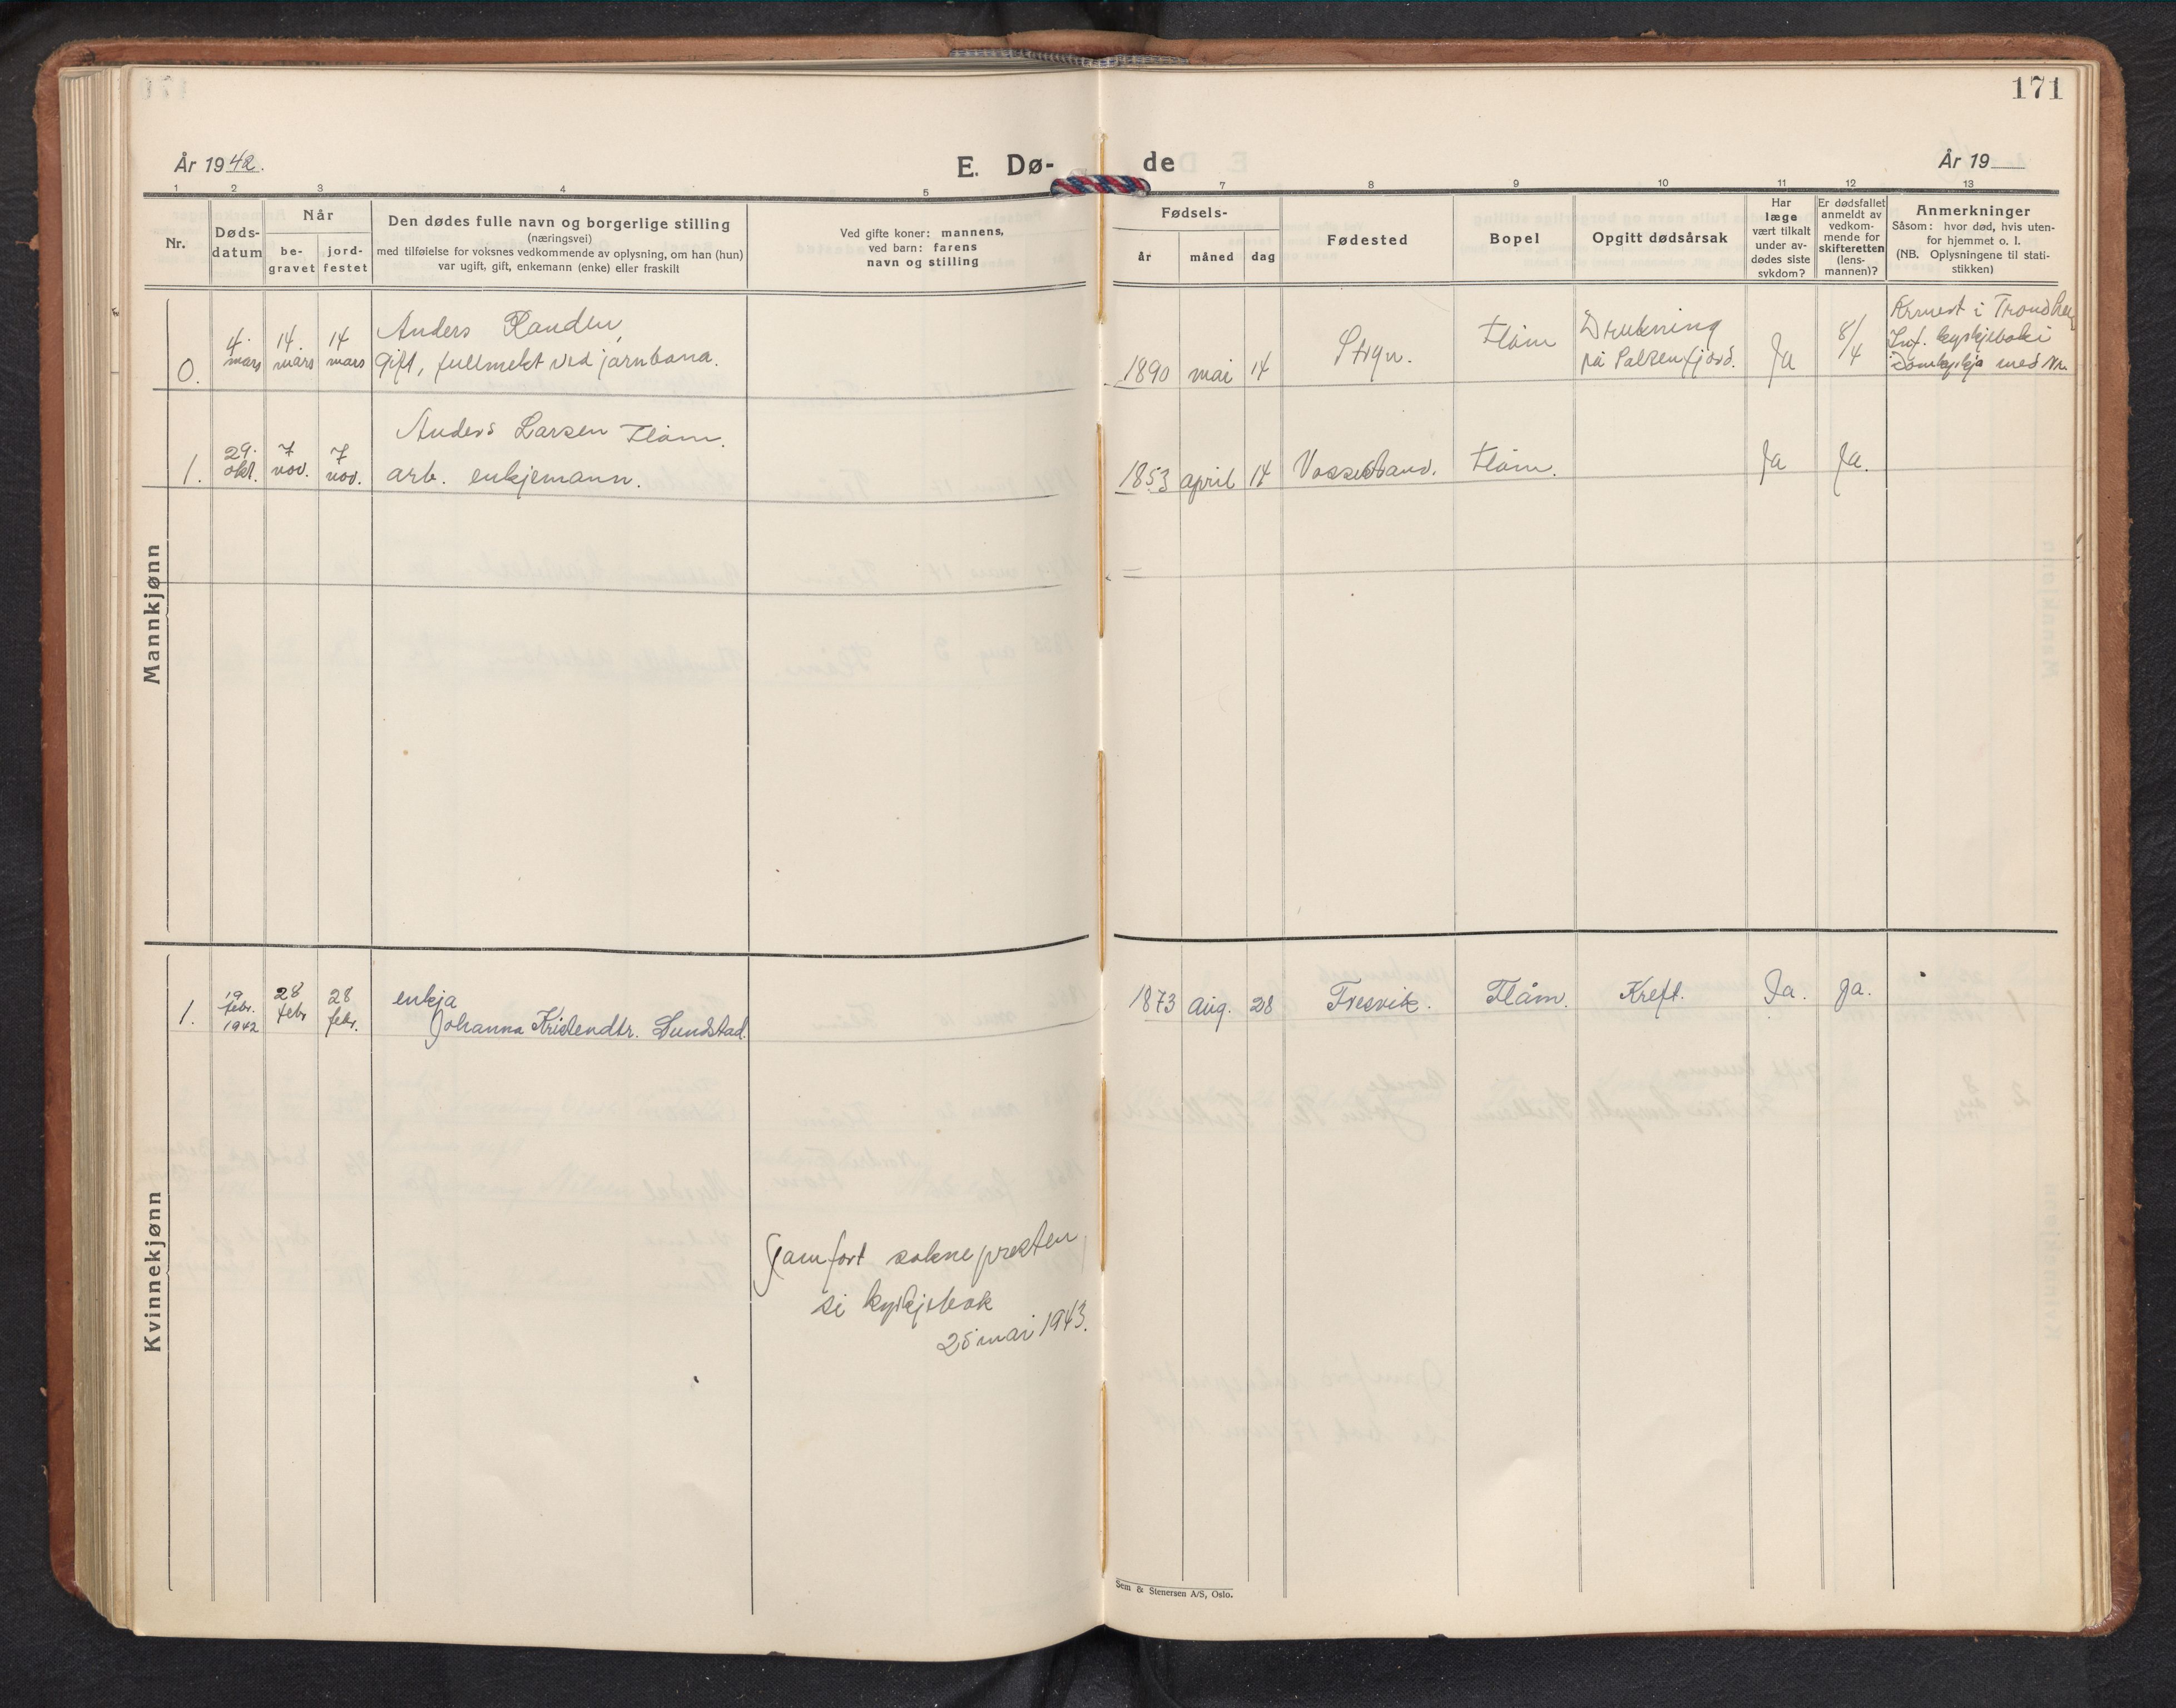 171
År 1942.
E. Dø-
de
År 19
1 2 3 4 5 7 8 9 10 11 12 13
Nr.
Døds-
datum
Når
be-
gravet
jord-
festet
Den dødes fulle navn og borgerlige stilling
(næringsvei)
med tilføielse for voksnes vedkommende av oplysning, om han (hun)
var ugift, gift, enkemann (enke) eller fraskilt
Ved gifte koner: mannens,
ved barn: farens
navn og stilling
Fødsels-
år
måned
dag
Fødested
Bopel
Opgitt dødsårsak
Har
læge
vært tilkalt
under av-
dødes siste
sykdom?
Er dødsfallet
anmeldt av
vedkom-
mende for
skifteretten
(lens-
mannen)?
Anmerkninger
Såsom: hvor død, hvis uten-
for hjemmet o. l.
(NB. Oplysningene til stati-
stikken)
Mannkjønn
0.
4.
mars
14.
mars
14
mars
Anders Randen,
Gift, fullmekt ved jarnbana.
1890 mai 14
Stryn.
Flåm
Drukning
på Salsenfjord.
Ja
8/4
i Trondheim
kyrkjeboki
Domkyrkja med Nr.
1.
29.
okt.
7
nov.
7
nov.
Anders Larsen Flåm.
arb. enkjemann.
1853 april 14
Vossestrand.
Flåm.
Ja
Ja.
Kvinnekjønn
1.
19
febr.
1942
28
febr
28
febr.
enkja
Johanna Kristendtr. Sundstad.
1873 aug. 28
Fresvik.
Flåm.
Kreft.
Ja.
Ja.
Jamført soknepresten
si kyrkjebok
25 mai 1943.
Sem & Stenersen A/S, Oslo.